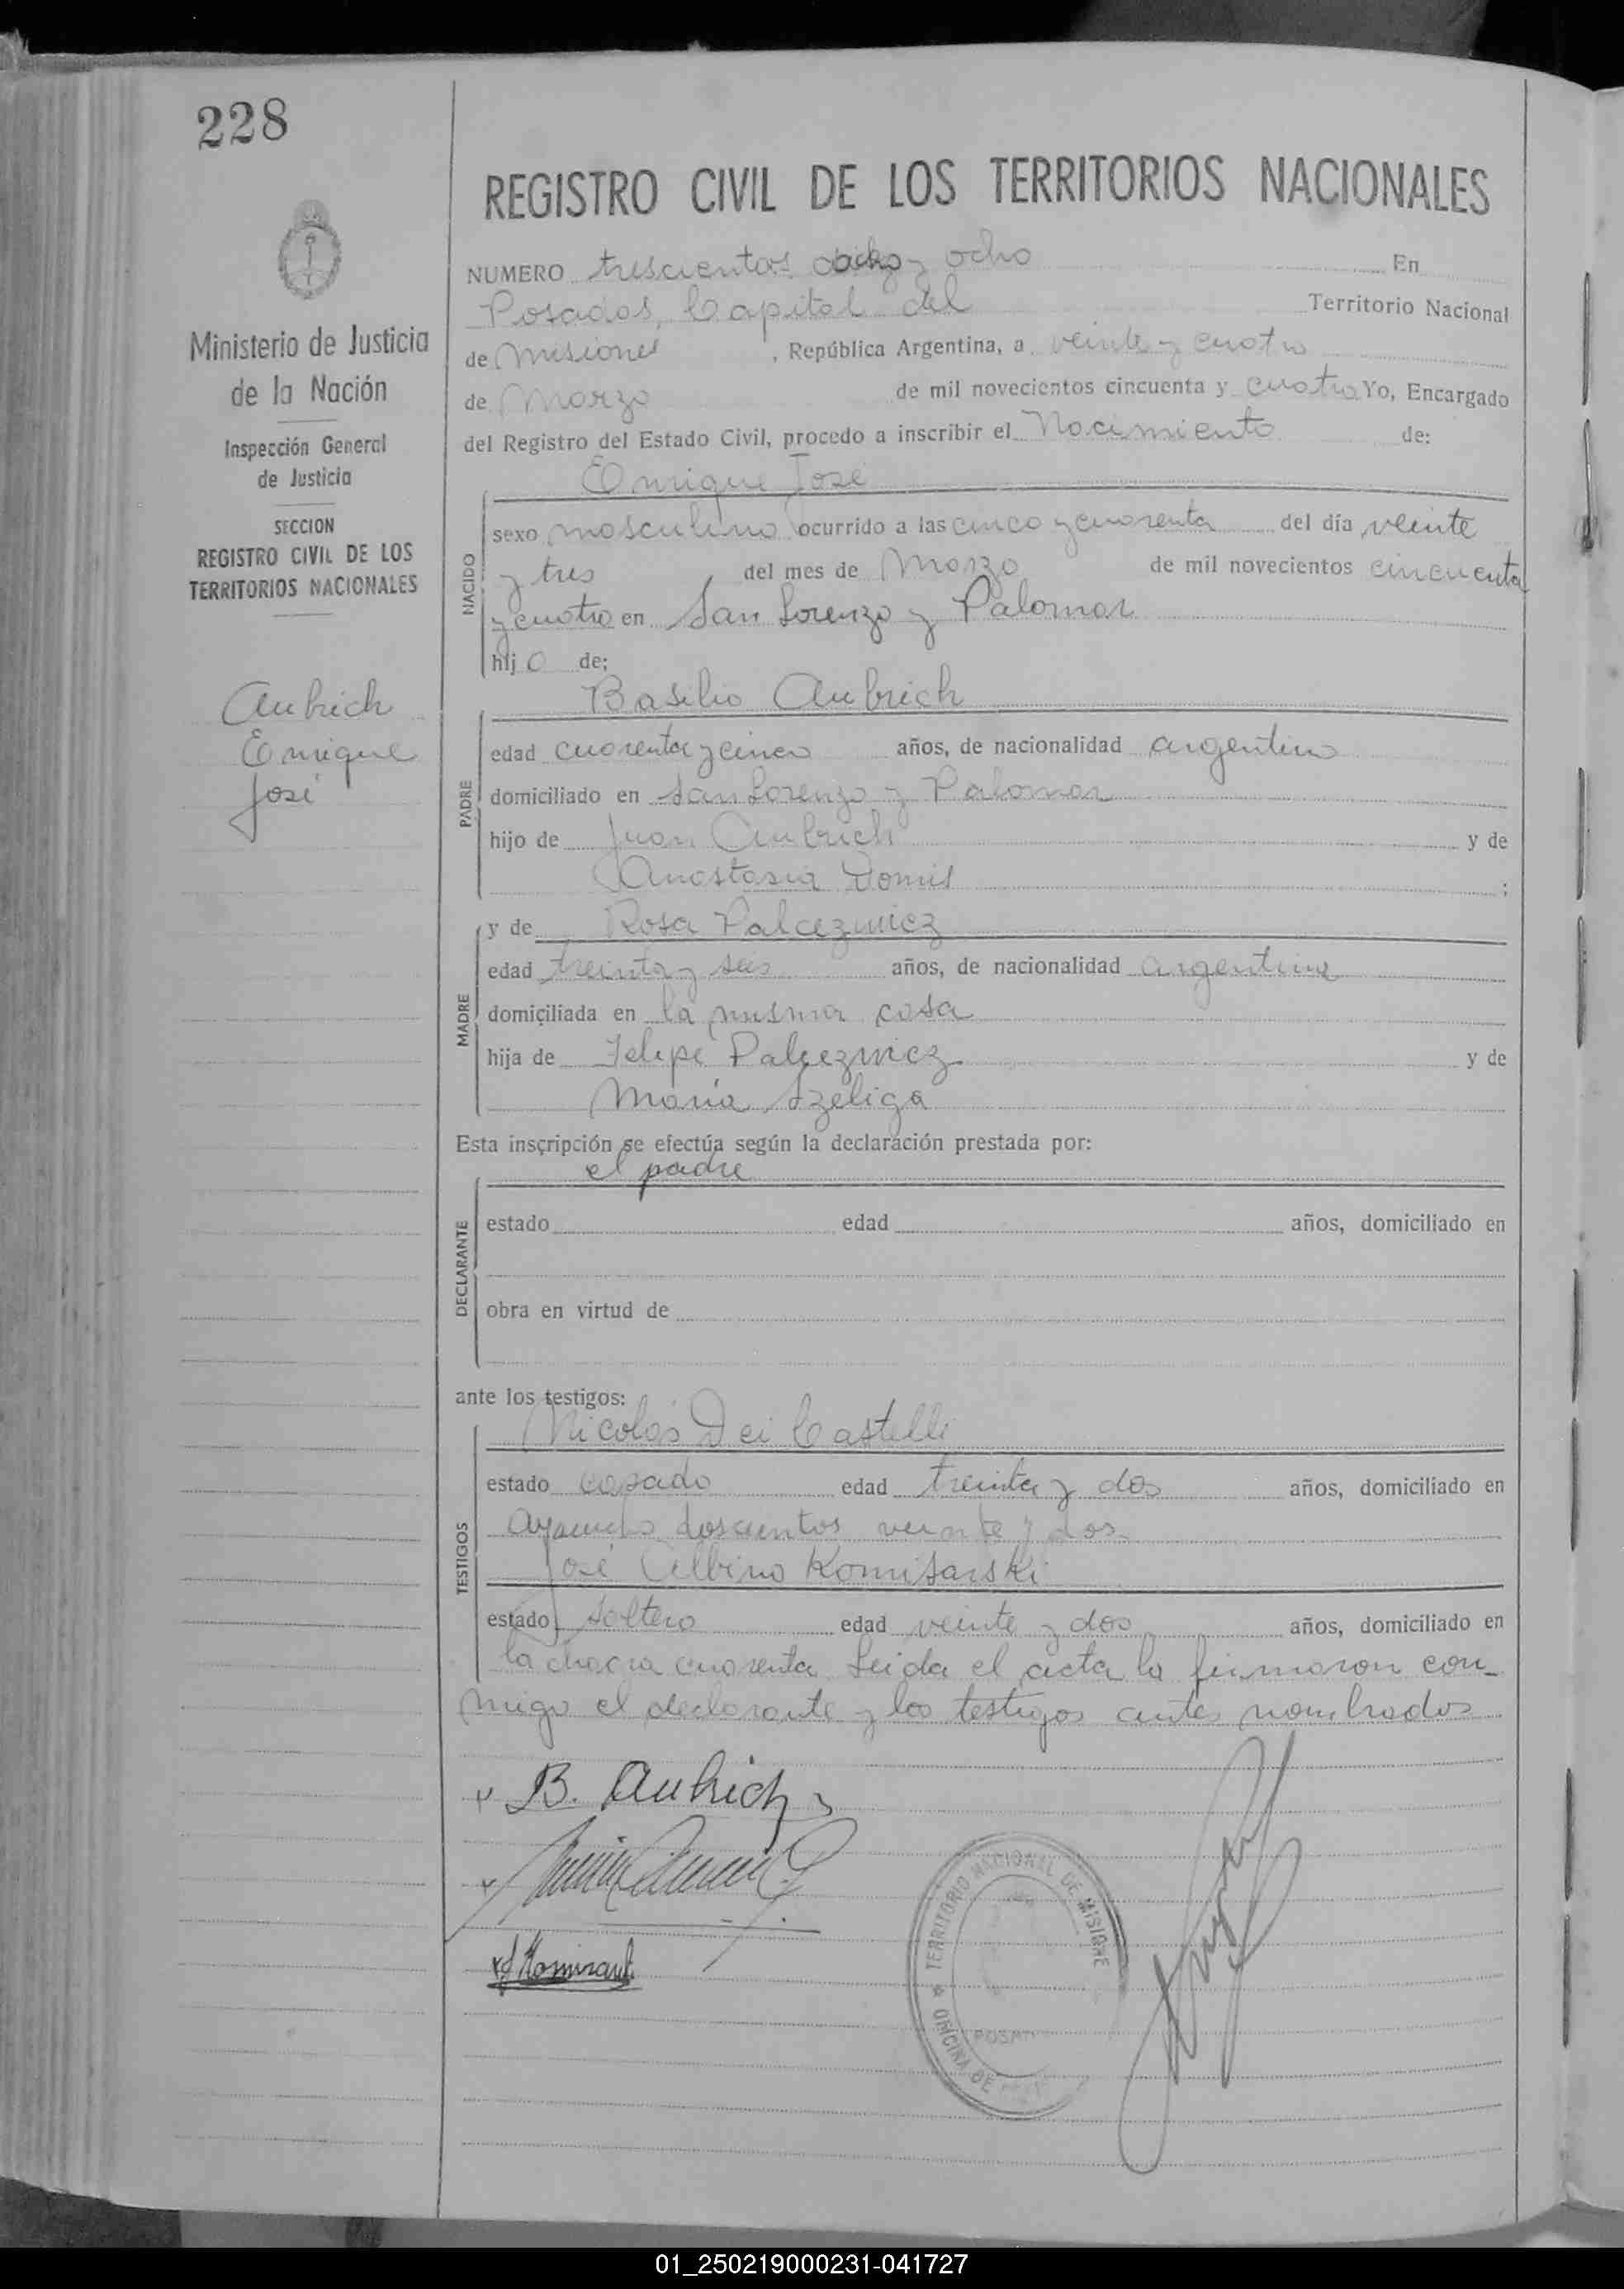 228
REGISTRO CIVIL DE LOS TERRITORIOS NACIONALES
Ministerio de Justicia
de la Nación
Inspección General
de Justicia
SECCION
REGISTRO CIVIL DE LOS
TERRITORIOS NACIONALES
Aubrich
Enrique
José
NUMERO trescientos y ocho En
Posadas, Capital del Territorio Nacional
de Misiones, República Argentina, a veinte y cuatro
de Marzo de mil novecientos cincuenta y cuatro Yo, Encargado
del Registro del Estado Civil, procedo a inscribir el Nacimiento de:
Enrique José
NACIDO
sexo masculino ocurrido a las cinco y cuarenta del día veinte
y tres del mes de Marzo de mil novecientos cincuenta
y cuatro en San Lorenzo y Palomar
hijo de:
Basilio Aubrich
PADRE
edad cuarenta y cinco años, de nacionalidad argentino
domiciliado en San Lorenzo y Palomar
hijo de Juan Aubrich y de
Anastasia Domis;
MADRE
y de Rosa Palcezwicz
edad treinta y seis años, de nacionalidad argentina
domiciliada en la misma casa
hija de Felipe Palcezwicz y de
María Szeliga
Esta inscripción se efectúa según la declaración prestada por:
el padre
DECLARANTE
estado edad años, domiciliado en
obra en virtud de
ante los testigos:
Nicolás Dei Castelli
TESTIGOS
estado casado edad treinta y dos años, domiciliado en
Ayacucho doscientos veinte y dos
José Albino Komisarski
estado soltero edad veinte y dos años, domiciliado en
la chacra cuarenta Leida el acta la firmaron con-
migo el declarante y los testigos antes nombrados
B. Aubrich
TERRITORIO NACIONAL DE MISIONE
OFICINA DE
POSA
01_250219000231-041727